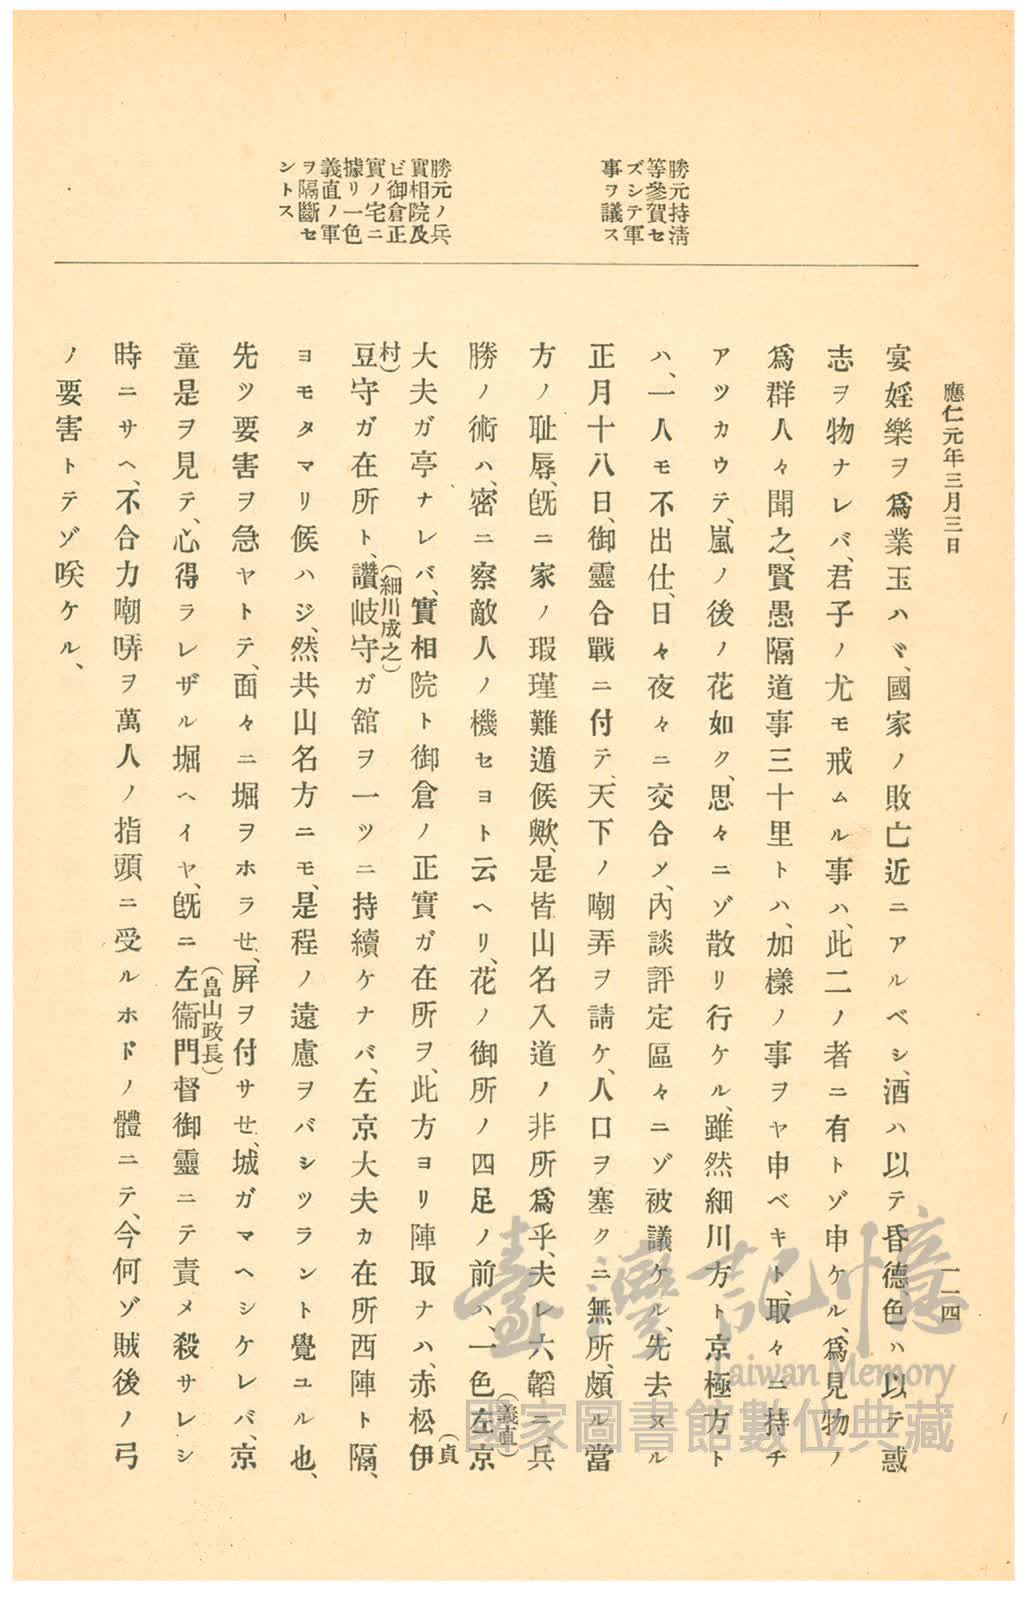 應仁元年三月三日
一一四
勝元持清
等參賀セ
ズシテ軍
事ヲ議ス
勝元ノ兵
實相院及
ビ御倉正
實ノ宅ニ
據リ一色
義直ノ軍
ヲ隔斷セ
ントス
宴婬樂ヲ爲業玉ハヾ、國家ノ敗亡近ニアルベシ、酒ハ以テ昏德色ハ以テ惑
志ヲ物ナレバ、君子ノ尤モ戒ムル事ハ、此二ノ者ニ有トゾ申ケル、爲見物ノ
爲群人々聞之、賢愚隔道事三十里トハ、加樣ノ事ヲヤ申ベキト、取々ニ持チ
アツカウテ、嵐ノ後ノ花如ク、思々ニゾ散リ行ケル、雖然細川方ト京極方ト
ハ、一人モ不出仕、日々夜々ニ交合ソ、內談評定區々ニゾ被議ケル、先去ヌル
正月十八日、御靈合戰ニ付テ、天下ノ嘲弄ヲ請ケ、人口ヲ塞クニ無所、頗ル當
方ノ耻辱、旣ニ家ノ瑕瑾難遁候歟、是皆山名入道ノ非所爲乎、夫レ六韜ニ、兵
勝ノ術ハ、密ニ察敵人ノ機セヨト云ヘリ、花ノ御所ノ四足ノ前ハ、一色左京
(義直)
大夫ガ亭ナレバ、實相院ト御倉ノ正實ガ在所ヲ、此方ヨリ陣取ナハ、赤松伊
(貞
村)
豆守ガ在所ト、讚岐守ガ舘ヲ一ツニ持續ケナバ、左京大夫カ在所西陣ト隔、
(細川成之)
ヨモタマリ候ハジ、然共山名方ニモ、是程ノ遠慮ヲバシツラント覺ユル也、
先ツ要害ヲ急ヤトテ、面々ニ堀ヲホラせ、屛ヲ付サせ、城ガマヘシケレバ、京
童是ヲ見テ、心得ラレザル堀ヘイヤ、旣ニ左衞門督御靈ニテ責メ殺サレシ
(畠山政長)
時ニサヘ、不合力嘲哢ヲ萬人ノ指頭ニ受ルホドノ體ニテ、今何ゾ賊後ノ弓
ノ要害トテゾ咲ケル、
臺灣記憶
Taiwan Memory
國家圖書館數位典藏